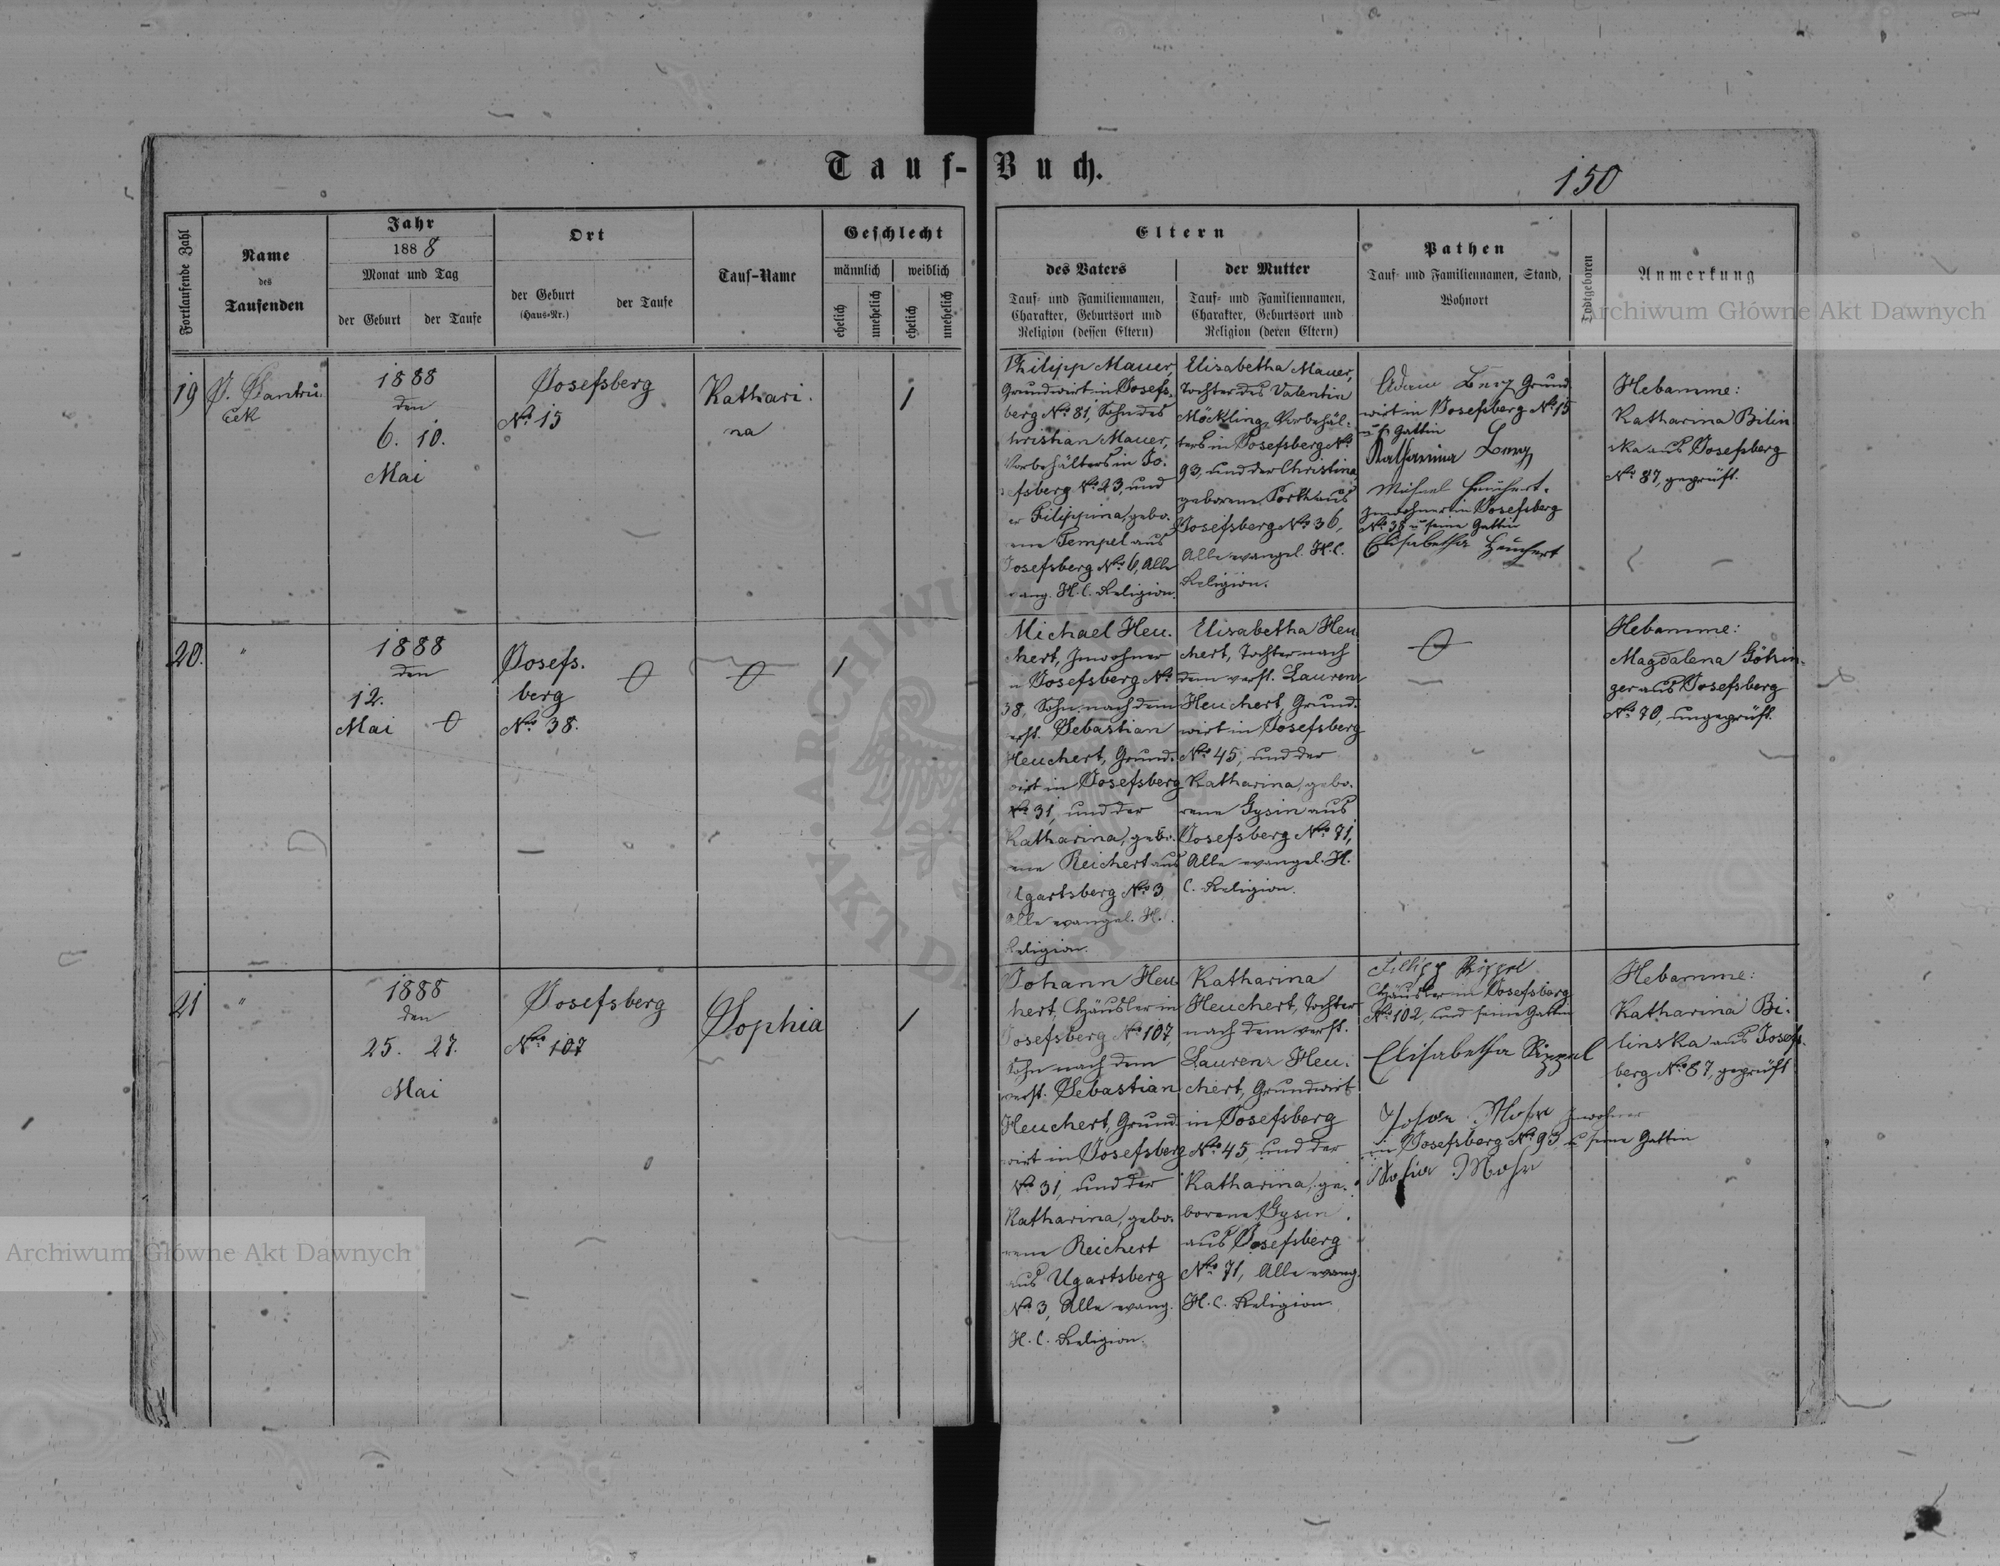 Tauf-Buch.
150
Fortlaufende Zahl
Name
des
Taufenden
Jahr
1888
Monat und Tag
der Geburt
der Taufe
Ort
der Geburt
(Haus-Nr.)
der Taufe
Tauf-Name
Geschlecht
männlich
weiblich
ehelich
unehelich
ehelich
unehelich
Eltern
des Vaters
Tauf- und Familiennamen,
Charakter, Geburtsort und
Religion (dessen Eltern)
der Mutter
Tauf- und Familiennamen,
Charakter, Geburtsort und
Religion (deren Eltern)
Pathen
Tauf- und Familiennamen, Stand,
Wohnort
Todtgeboren
Anmerkung
19
1888
den
6. 10.
Mai
Josefsberg
No 15
Kathari-
na
1
Philipp Mauer,
Grundwirt in Josefs-
berg No 81, Sohn des
Christian Mauer,
Vorbehälters in Jo-
sefsberg No 23, und
der Filippina, gebo-
rene Tempel aus
Josefsberg No 6, Alle
evang. H. C. Religion.
Elisabetha Mauer,
Tochter des Valentin
Möckling, Vorbehäl-
ters in Josefsberg No
93, und der Christina
geborene Porth aus
Josefsberg No 36,
Alle evangel. H. C.
Religion.
Adam Grund-
wirt in Josefsberg No 15
u. Gattin
Katharina
Michael Heuchert,
Inwohner in Josefsberg
No 38 u. seine Gattin
Elisabetha Heuchert
Hebamme:
Katharina Bilin-
ska aus Josefsberg
No 87, geprüft.
20.
"
1888
den
12.
Mai
Josefs-
berg
No 38.
1
Michael Heu-
chert, Inwohner
in Josefsberg No
38, Sohn nach dem
verst. Sebastian
Heuchert, Grund-
wirt in Josefsberg
No 31, und der
Katharina, gebo-
rene Reichert aus
Ugartsberg No 3
Alle evangel. H. C.
Religion.
Elisabetha Heu-
chert, Tochter nach
dem verst. Laurenz
Heuchert, Grund-
wirt in Josefsberg
No 45, und der
Katharina, gebo-
rene Gysin aus
Josefsberg No 71,
Alle evangel. H.
C. Religion.
Hebamme:
Magdalena Göhrin-
ger aus Josefsberg
No 70, ungeprüft.
21
"
1888
den
25. 27.
Mai
Josefsberg
No 107
Sophia
1
Johann Heu-
chert, Häusler in
Josefsberg No 107,
Sohn nach dem
verst. Sebastian
Heuchert, Grund-
wirt in Josefsberg
No 31, und der
Katharina, gebo-
rene Reichert
aus Ugartsberg
No 3, Alle evang.
H. C. Religion.
Katharina
Heuchert, Tochter
nach dem verst.
Laurenz Heu-
chert, Grundwirt
in Josefsberg
No 45, und der
Katharina, ge-
borene Gysin
aus Josefsberg
No 71, Alle evang.
H. C. Religion.
Filipp Rippel
Häusler in Josefsberg
No 102, und seine Gattin
Elisabetha Rippel
Johan Mohr Inwohner
in Josefsberg No 93 u. seine Gattin
Sofia Mohr
Hebamme:
Katharina Bi-
linska aus Josefs-
berg No 87, geprüft
Archiwum Główne Akt Dawnych
Archiwum Główne Akt Dawnych